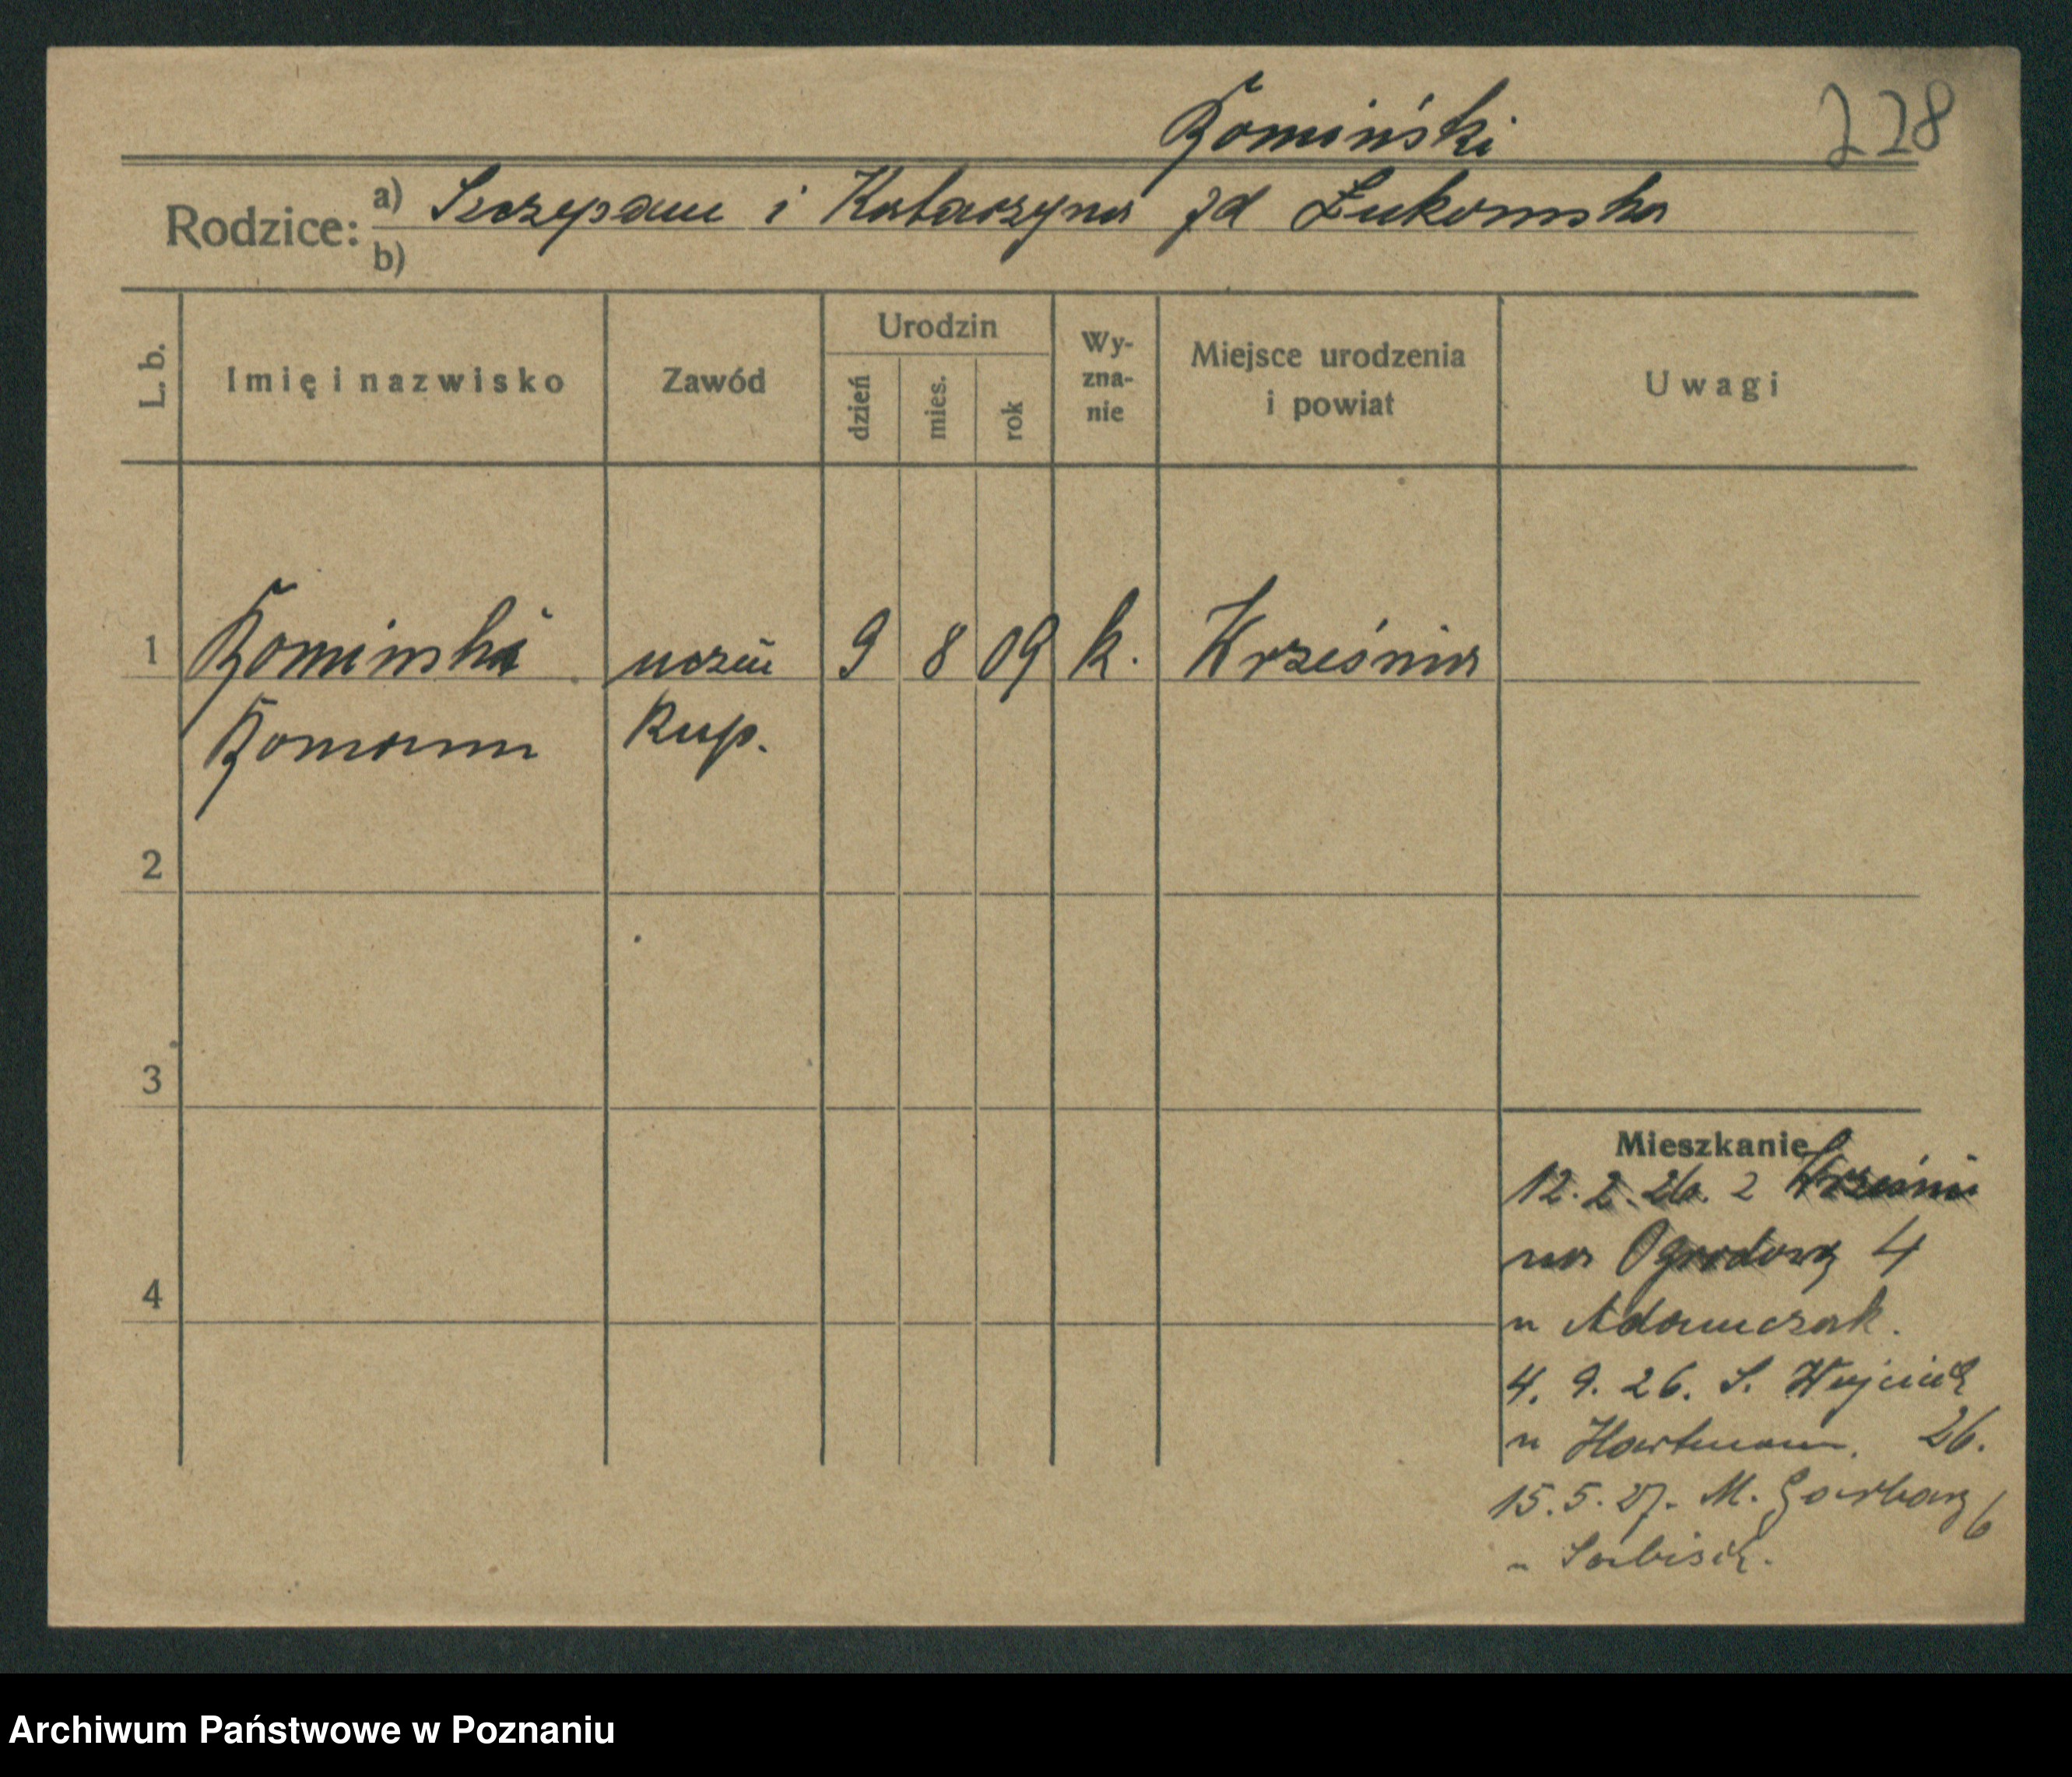 Romiński
228
Rodzice: a) Szczepan i Katarzyna zd Łukomska
b)
L. b. Imię i nazwisko Zawód Urodzin dzień mies. rok Wy-zna-nie Miejsce urodzenia i powiat Uwagi
1 Rominski uczeń 9 8 09 k. Września
Roman kup.
2
3
4
Mieszkanie
12. 2. 26. z Wrześni
na Ogrodową 4
u Adamczak.
4. 9. 26. S. Wojciech
u Hartmann. 26.
15. 5. 27. M. Garbary 6
u
Archiwum Państwowe w Poznaniu